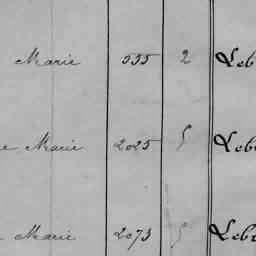 Marie 555 2 Leb
e Marie 2025 5 Leb
Marie 2073 5 Lebr